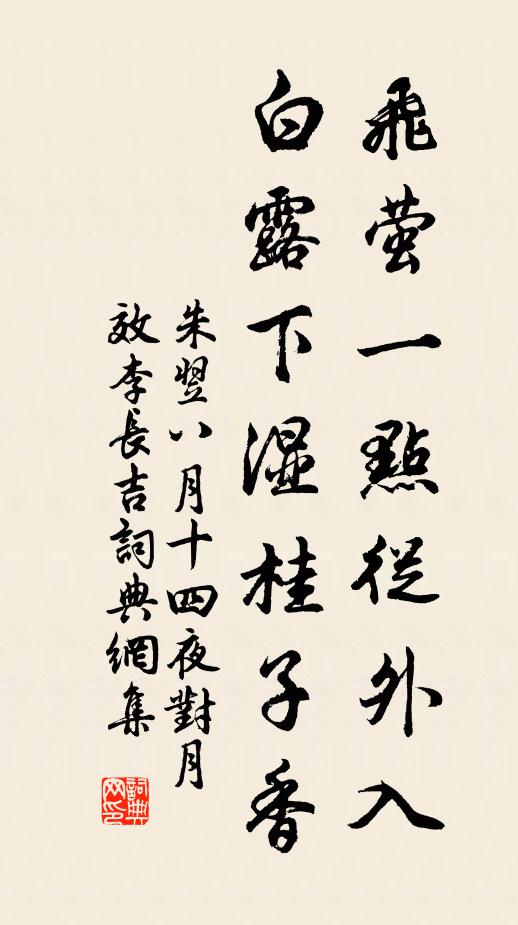 飛萤一點從外入
白露下濕桂子香
朱翌八月十四夜對月
效李長吉詞典網集
詞典
网印